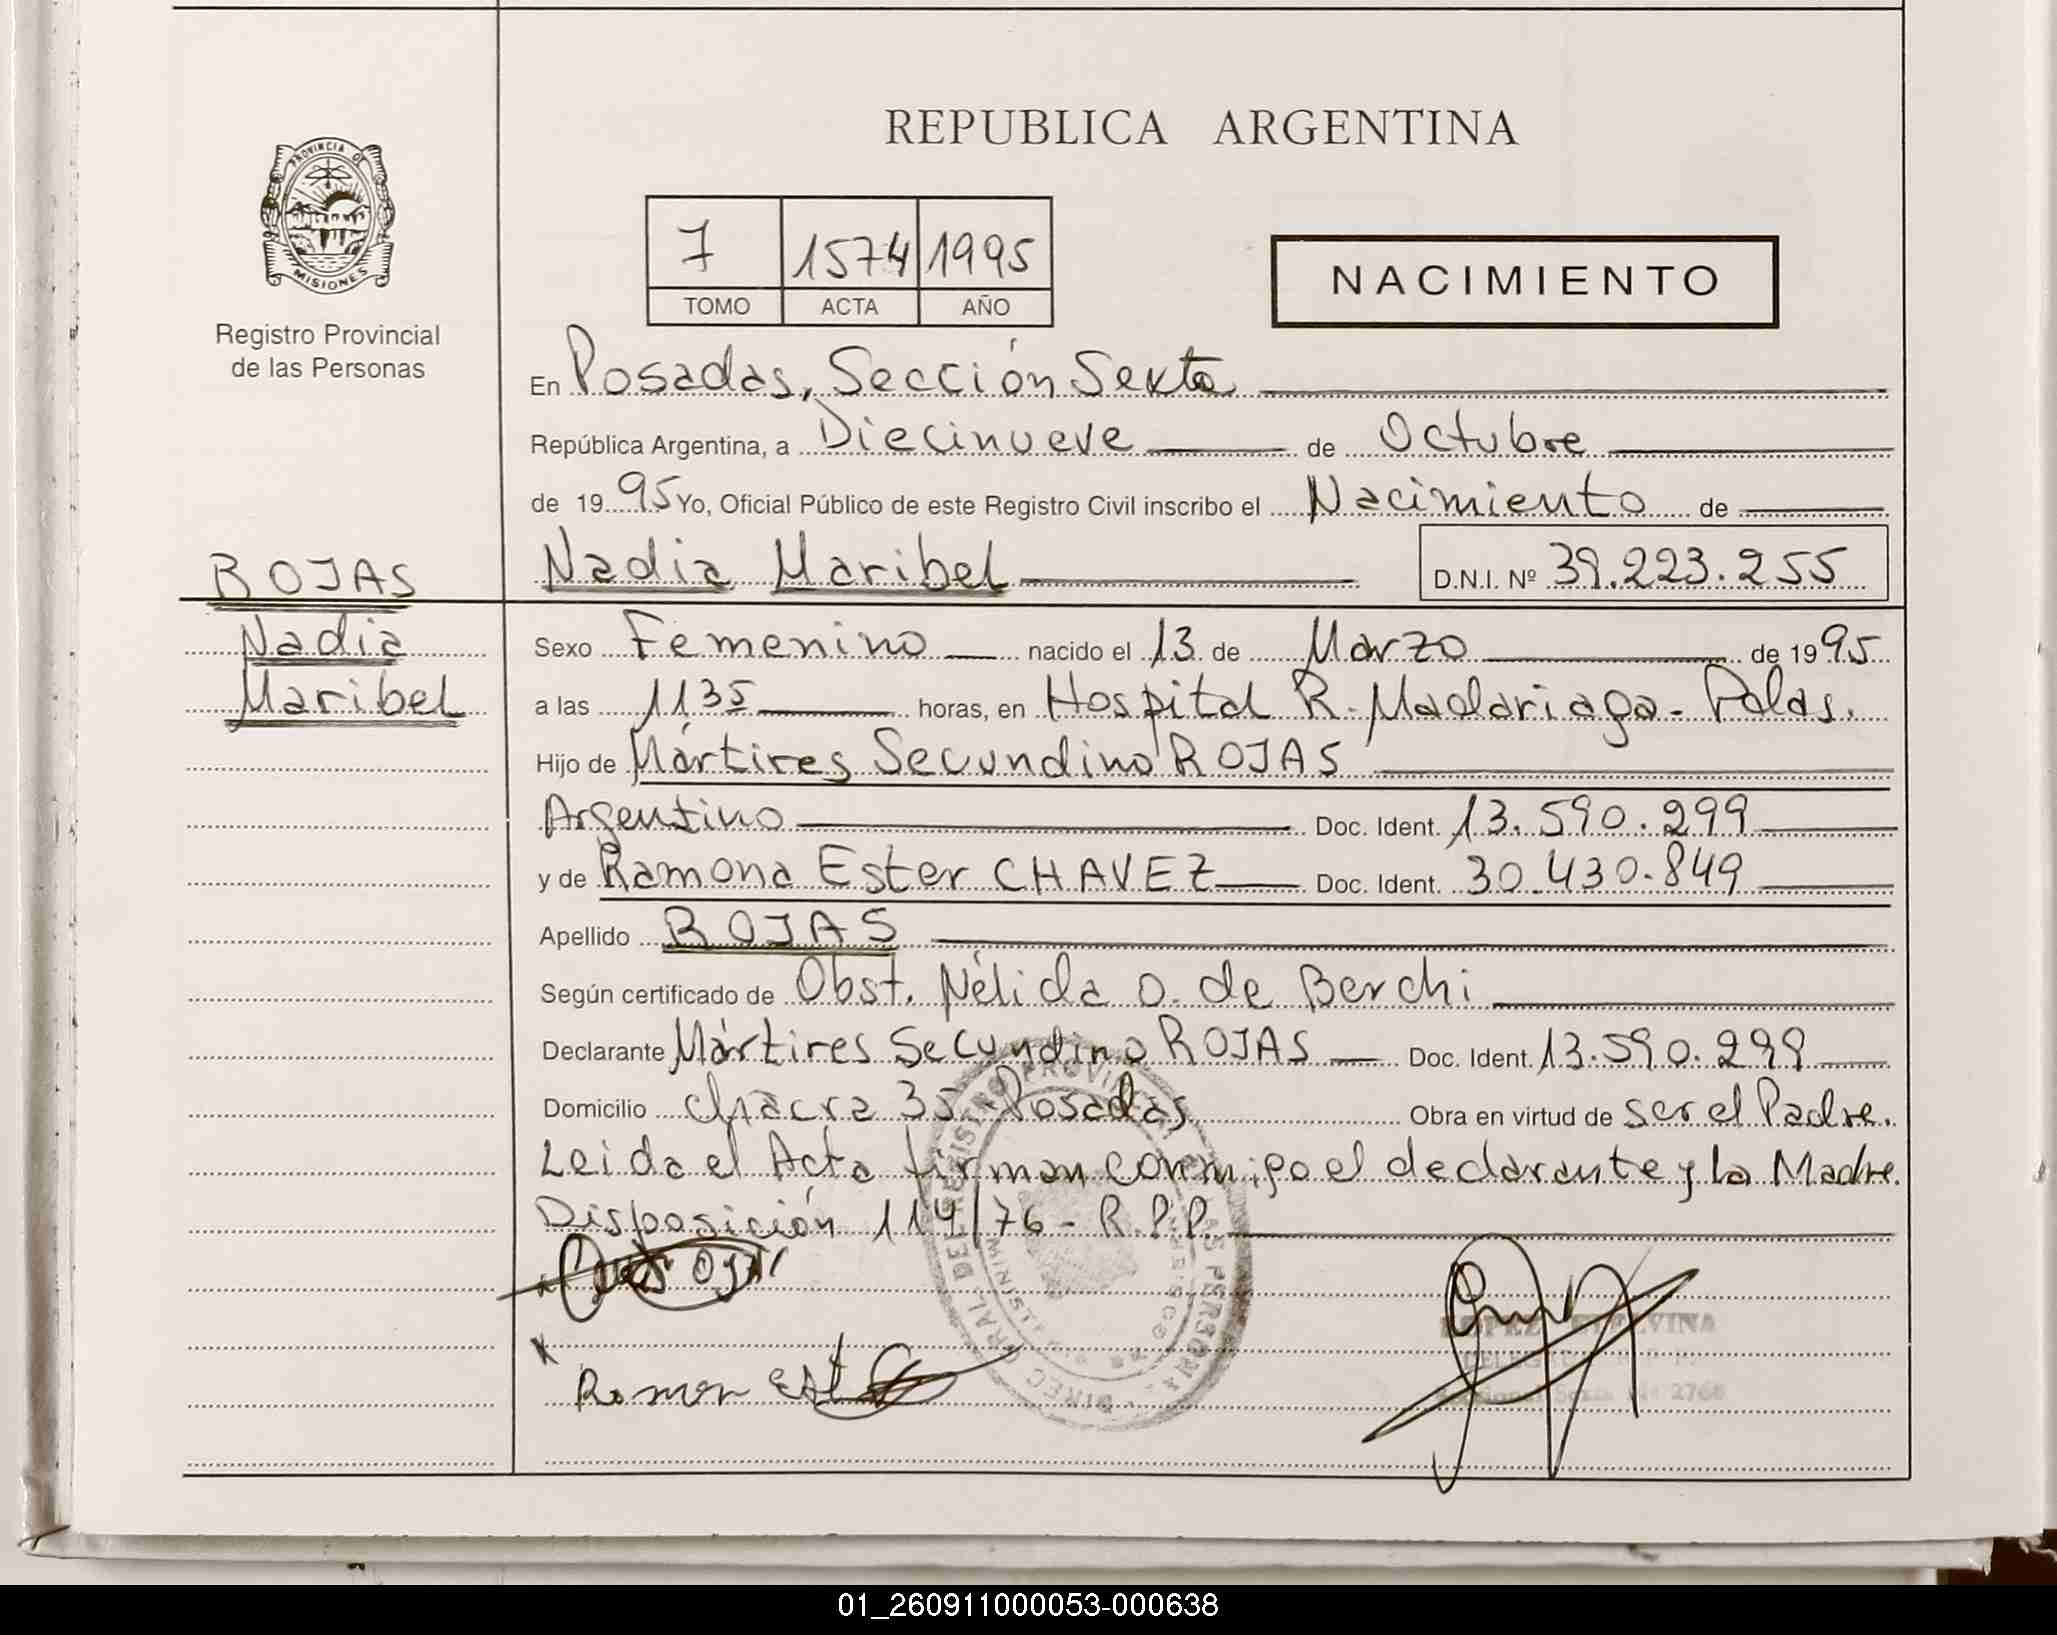 REPUBLICA ARGENTINA
PROVINCIA DE
MISIONES
Registro Provincial
de las Personas
7 1574 1995
TOMO ACTA AÑO
NACIMIENTO
En Posadas, Sección Sexta
República Argentina, a Diecinueve de Octubre
de 1995 Yo, Oficial Público de este Registro Civil inscribo el Nacimiento de
ROJAS
Nadia
Maribel
Nadia Maribel D.N.I. Nº 39.223.255
Sexo Femenino nacido el 13 de Marzo de 1995
a las 11,35 horas, en Hospital R. Madariaga - Pdas.
Hijo de Mártires Secundino ROJAS
Argentino Doc. Ident. 13.590.299
y de Ramona Ester CHAVEZ Doc. Ident. 30.430.849
Apellido ROJAS
Según certificado de Obst. Nélida O. de Berchi
Declarante Mártires Secundino ROJAS Doc. Ident. 13.590.299
Domicilio Chacra 35 - Posadas Obra en virtud de ser el Padre.
Leida el Acta firman conmigo el declarante y la Madre.
Disposición 114/76 - R.P.P.
Ramon Est
LOPEZ ETELVINA
01_260911000053-000638